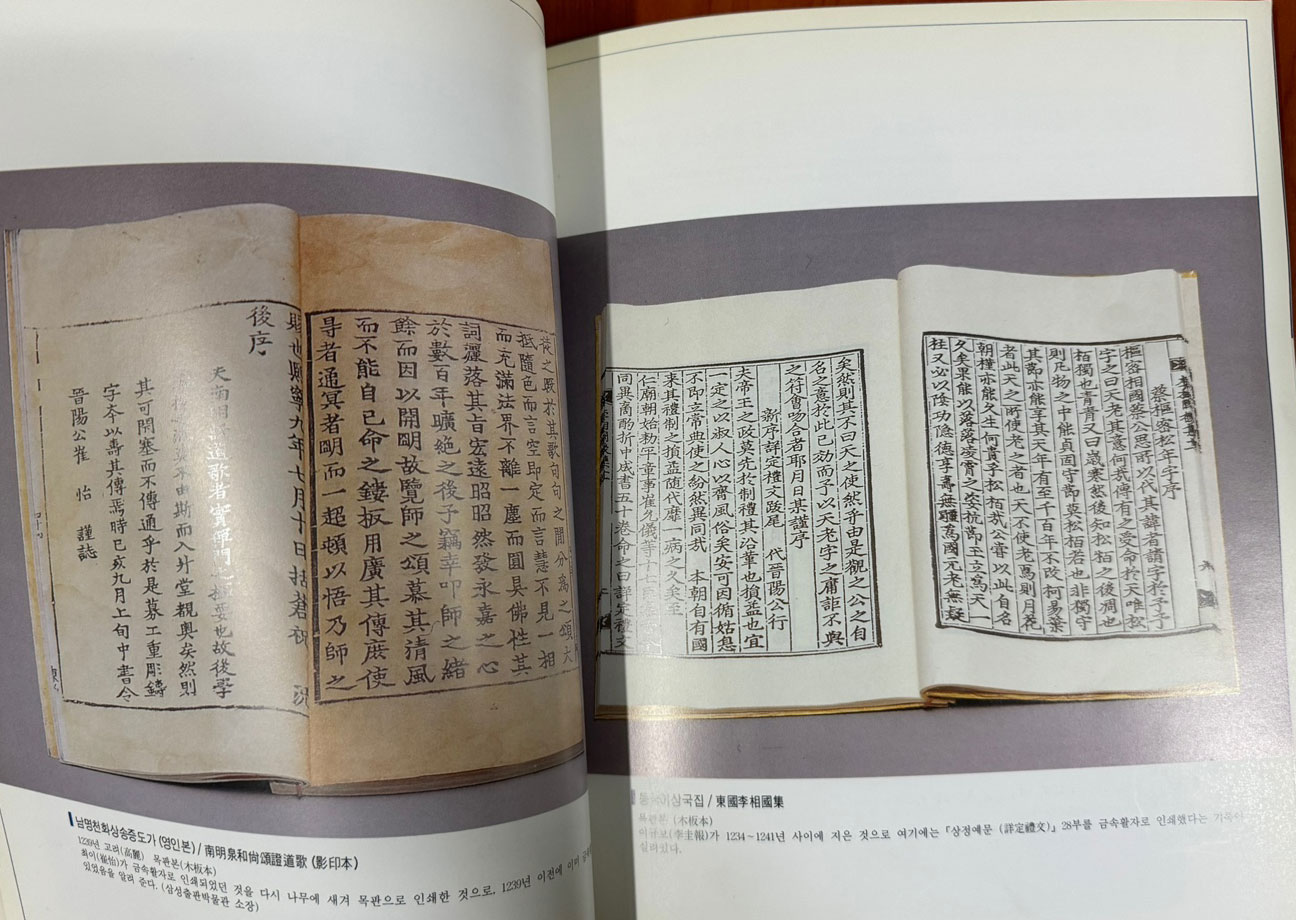 於其歌句句之閒分爲之頌大
抵隨色而言空即定而言慧不見一相
而充滿法界不離一塵而圓具佛性其
詞灑落其旨宏遠昭昭然發永嘉之心
於數百年曠絶之後予竊幸叩師之緒
餘而因以開朙故覽師之頌慕其清風
而不能自已命之鏤板用廣其傳庶使
㝵者通冥者朙而一起頓以悟乃師之
賜也熙寧九年七月十日括蒼祝 況
後序
夫南明 道歌者實禪門之樞要也故後學
莫不由斯而入升堂覩奧矣然則
其可閉塞而不傳通乎於是募工重彫鑄
字夲以壽其傳焉時已亥九月上旬中書令
晉陽公崔 怡 謹誌
남명천화상송증도가 (영인본) / 南明泉和尙頌證道歌 (影印本)
1239년 고려(高麗) 목판본(木板本)
최이(崔怡)가 금속활자로 인쇄되었던 것을 다시 나무에 새겨 목판으로 인쇄한 것으로, 1239년 이전에 이미
있었음을 알려 준다. (삼성출판박물관 소장)
蔡樞密松年字序
樞密相國蔡公思所以代其諱者請字於予予
字之曰天老其意何哉傳有之受命於天唯松
栢獨也青青又曰歲寒然後知松栢之後凋也
則凡物之中能貞固守節莫松栢若也非獨守
其節亦能享其天年有至千百年不改柯易葉
者此天之所使老之者也天不使老焉則月花
朝槿亦能久生何貴乎松栢哉公嘗以此自名
久矣果能以落落凌霄之姿抗節王立爲天一
柱又必以陰功隐德享壽無疆爲國元老無疑
矣然則其不曰天之使然乎由是觀之公之自
名之意於此已効而予以天老字之庸詎不與
之符會吻合者耶月日某謹序
新序詳定禮文跋尾 代晉陽公行
夫帝王之政莫先於制禮其沿革也損益也宜
一定之以淑人心以齊風俗矣安可因循姑息
不即立常典使之紛然異同哉 本朝自有國
来其禮制之損益隨代靡一病之久矣至
仁廟朝始勑平章事崔允儀等十七臣
同異商酌折中成書五十卷命之曰詳定禮文
상국집 / 東國李相國集
목판본 (木板本)
이규보(李奎報)가 1234～1241년 사이에 지은 것으로 여기에는 『상정예문 (詳定禮文)』 28부를 금속활자로 인쇄했다는
실려있다.